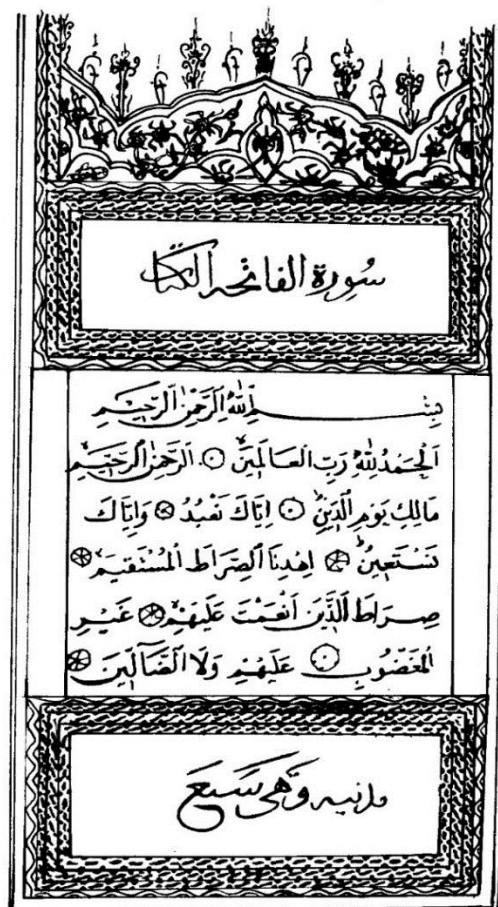 سُورة الفاتحة الكتاب
بِسْمِ اللّٰهِ الرَّحْمٰنِ الرَّحِيمِ
اَلْحَمْدُ لِلّٰهِ رَبِّ الْعَالَمِينَ ۝ اَلرَّحْمٰنِ الرَّحِيمِ
مَالِكِ يَوْمِ الدِّينِ ۝ اِيَّاكَ نَعْبُدُ ۝ وَاِيَّاكَ
نَسْتَعِينُ ۝ اِهْدِنَا الصِّرَاطَ الْمُسْتَقِيمَ ۝
صِرَاطَ الَّذِينَ اَنْعَمْتَ عَلَيْهِمْ ۝ غَيْرِ
الْمَغْضُوبِ ۝ عَلَيْهِمْ وَلَا الضَّالِّينَ ۝
مدنيه وَهى سَبعَ